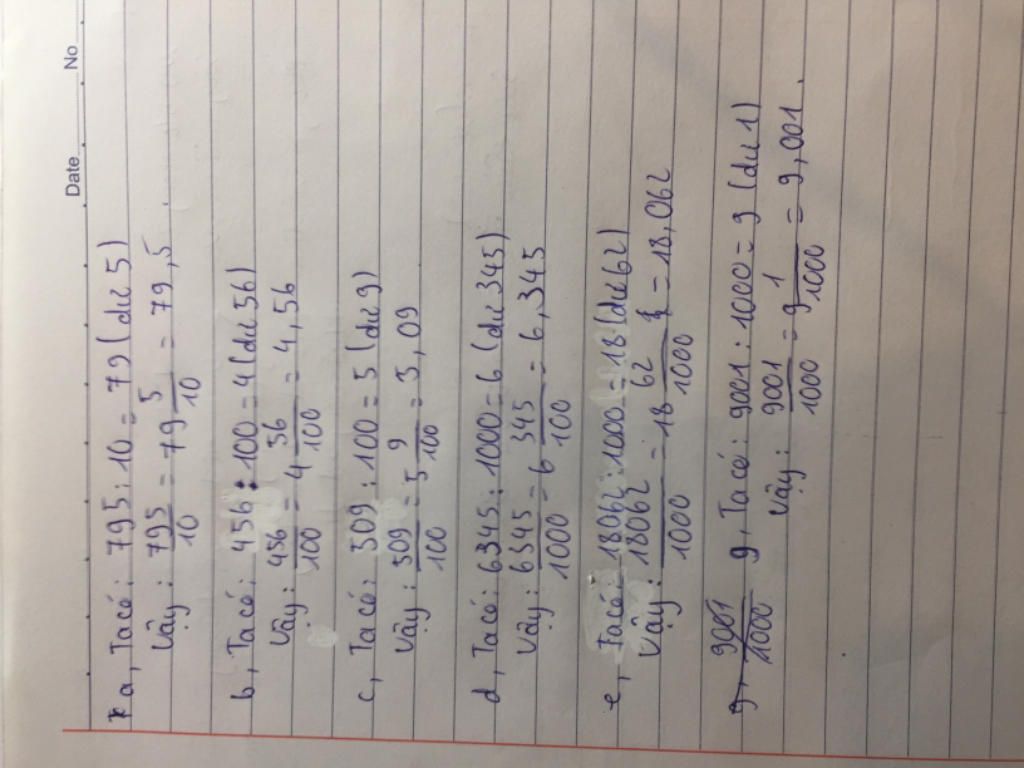 Date No
a, Ta có: 795 : 10 = 79 (dư 5)
Vậy: 795/10 = 79 5/10 = 79,5
b, Ta có: 456 : 100 = 4 (dư 56)
Vậy: 456/100 = 4 56/100 = 4,56
c, Ta có: 309 : 100 = 3 (dư 9)
Vậy: 309/100 = 3 9/100 = 3,09
d, Ta có: 6345 : 1000 = 6 (dư 345)
Vậy: 6345/1000 = 6 345/100 = 6,345
e, Ta có: 18062 : 1000 = 18 (dư 62)
Vậy: 18062/1000 = 18 62/1000 = 18,062
g, 9001/1000 g, Ta có: 9001 : 1000 = 9 (dư 1)
Vậy: 9001/1000 = 9 1/1000 = 9,001.